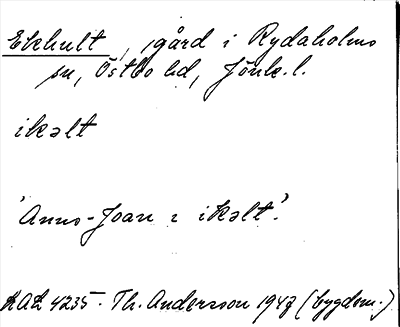 Ekhult, gård i Rydaholms
sn, Östbo hd, Jönk. l.
ikəlt
'Anna-Joan i ikəlt'.
LAL 4235. Th. Andersson 1947 (bygdem.)